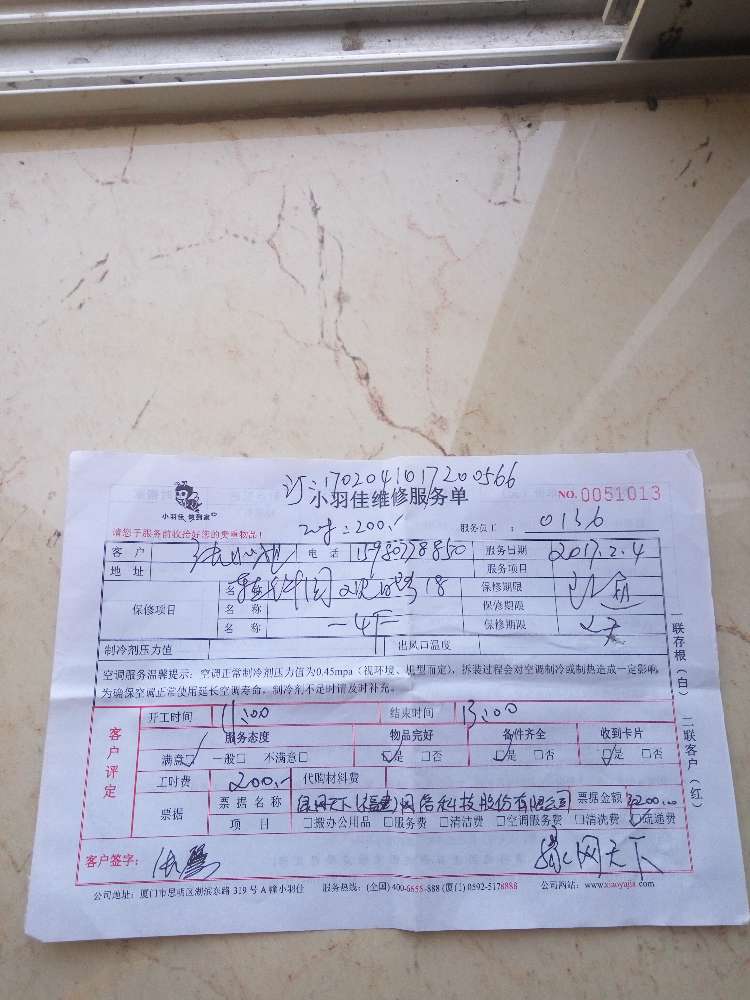 订:1702041017200566
小羽佳维修服务单
NO.0051013
小羽佳 做到家
2小时:200.-
请您于服务前收拾好您的贵重物品!
服务员工: 0136
客户 电话 15980778850 服务日期 2017.2.4
地址 服务项目
保修项目 名称 保修期限
名称 保修期限
名称 保修期限
制冷剂压力值 出风口温度
空调服务温馨提示:空调正常制冷剂压力值为0.45mpa(视环境、机型而定),拆装过程会对空调制冷或制热造成一定影响,
为确保空调正常使用延长空调寿命,制冷剂不足时请及时补充。
一联存根(白) 二联客户(红)
客户评定
开工时间 11:00 结束时间 13:00
服务态度 物品完好 备件齐全 收到卡片
满意☑ 一般□ 不满意□ ☑是 □否 ☑是 □否 ☑是 □否
工时费 200.- 代购材料费
票据 票据名称 绿网天下(福建)网络科技股份有限公司 票据金额 200.00
项目 □搬办公用品 □服务费 □清洁费 □空调服务费 □清洗费 ☑疏通费
客户签字: 绿网天下
公司地址:厦门市思明区湖滨东路319号A幢小羽佳 服务热线:(全国)400-6656-888 (厦门)0592-5178888 公司网站:www.xiaoyujia.com